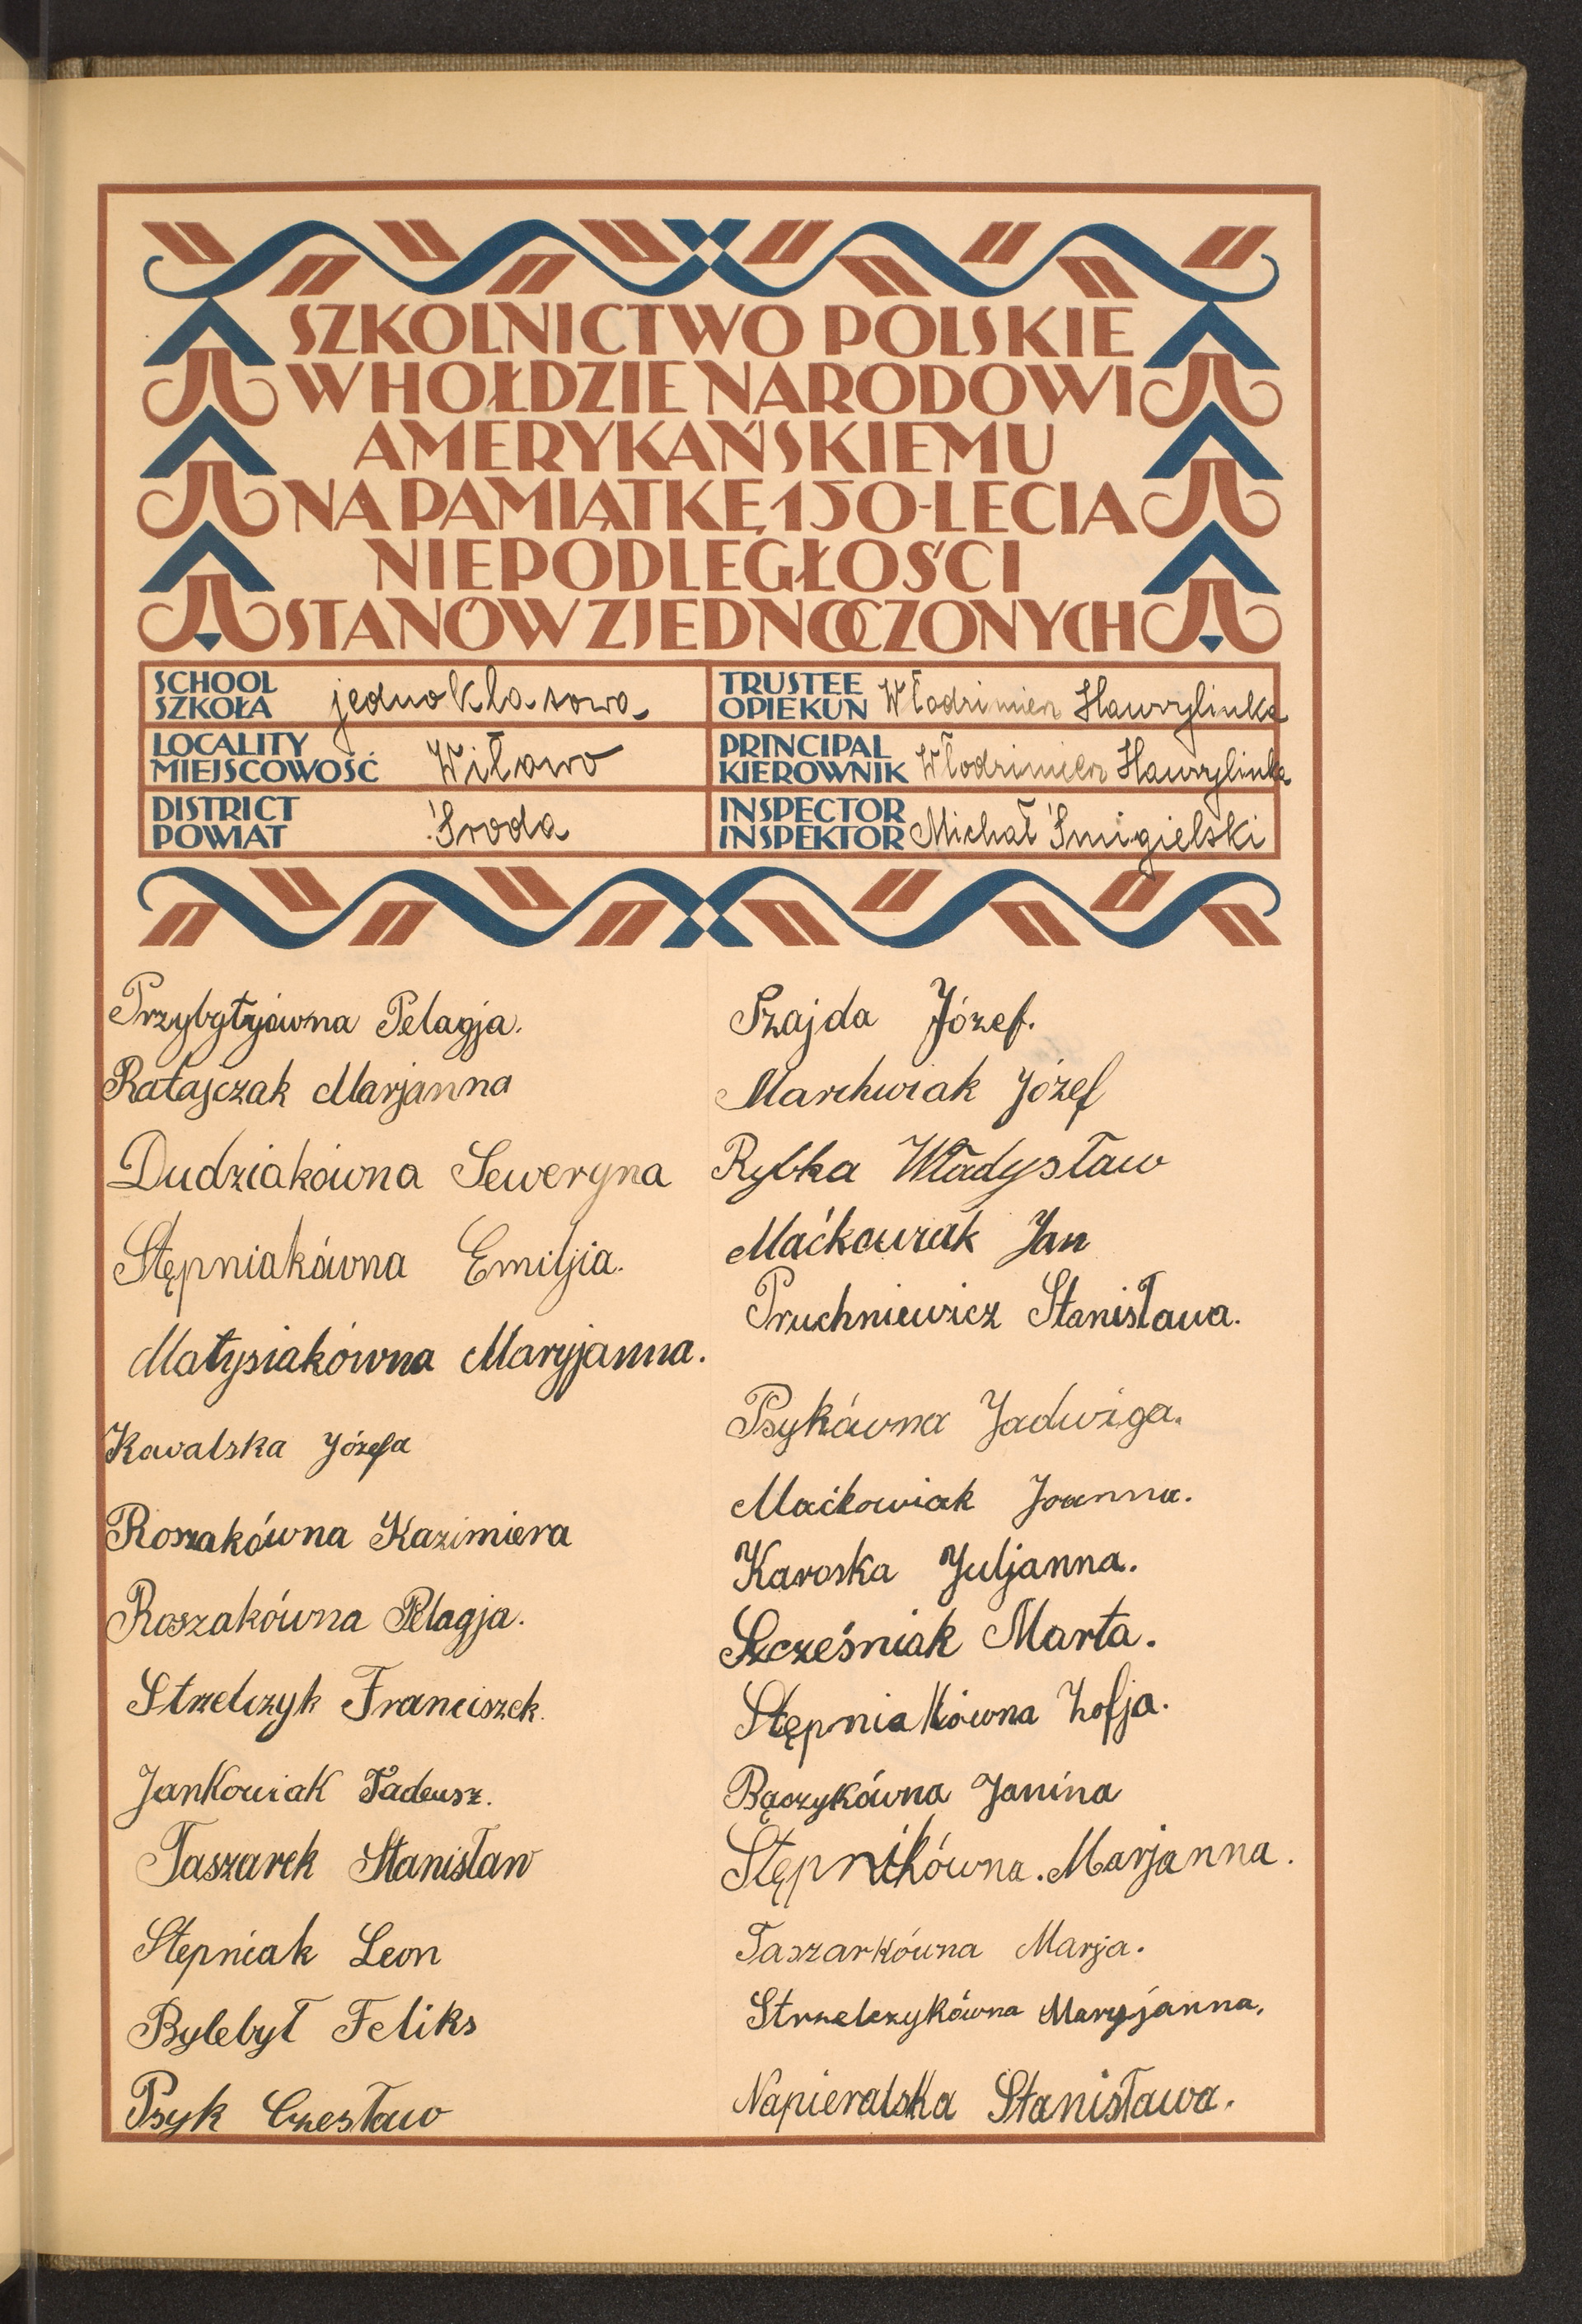 SZKOLNICTWO POLSKIE
W HOŁDZIE NARODOWI
AMERYKAŃSKIEMU
NA PAMIĄTKĘ 150-LECIA
NIEPODLEGŁOŚCI
STANÓW ZJEDNOCZONYCH
SCHOOL
SZKOŁA jednoklasowa
TRUSTEE
OPIEKUN Włodzimierz Hawrylinka
LOCALITY
MIEJSCOWOŚĆ Witowo
PRINCIPAL
KIEROWNIK Włodzimierz Hawrylinka
DISTRICT
POWIAT Środa
INSPECTOR
INSPEKTOR Michał Śmigielski
Przybyłyówna Pelagja.
Ratajczak Marjanna
Dudziakówna Seweryna
Stępniakówna Emiljia.
Matysiakówna Maryjanna.
Kowalska Józefa
Roszakówna Kazimiera
Roszakówna Pelagja.
Strzelczyk Franciszek.
Jankowiak Tadeusz.
Taszarek Stanisław
Stepniak Leon
Bylebył Feliks
Psyk Czesław
Szajda Józef.
Marchwiak Józef
Rybka Władysław
Maćkowiak Jan
Pruchniewicz Stanisława.
Psykówna Jadwiga.
Maćkowiak Joanna.
Karoska Juljanna.
Szcześniak Marta.
Stępniakówna Zofja.
Bączykówna Janina
Stępnikówna. Marjanna.
Taszarkówna Marja.
Strzelczykówna Maryjanna.
Napieralska Stanisława.